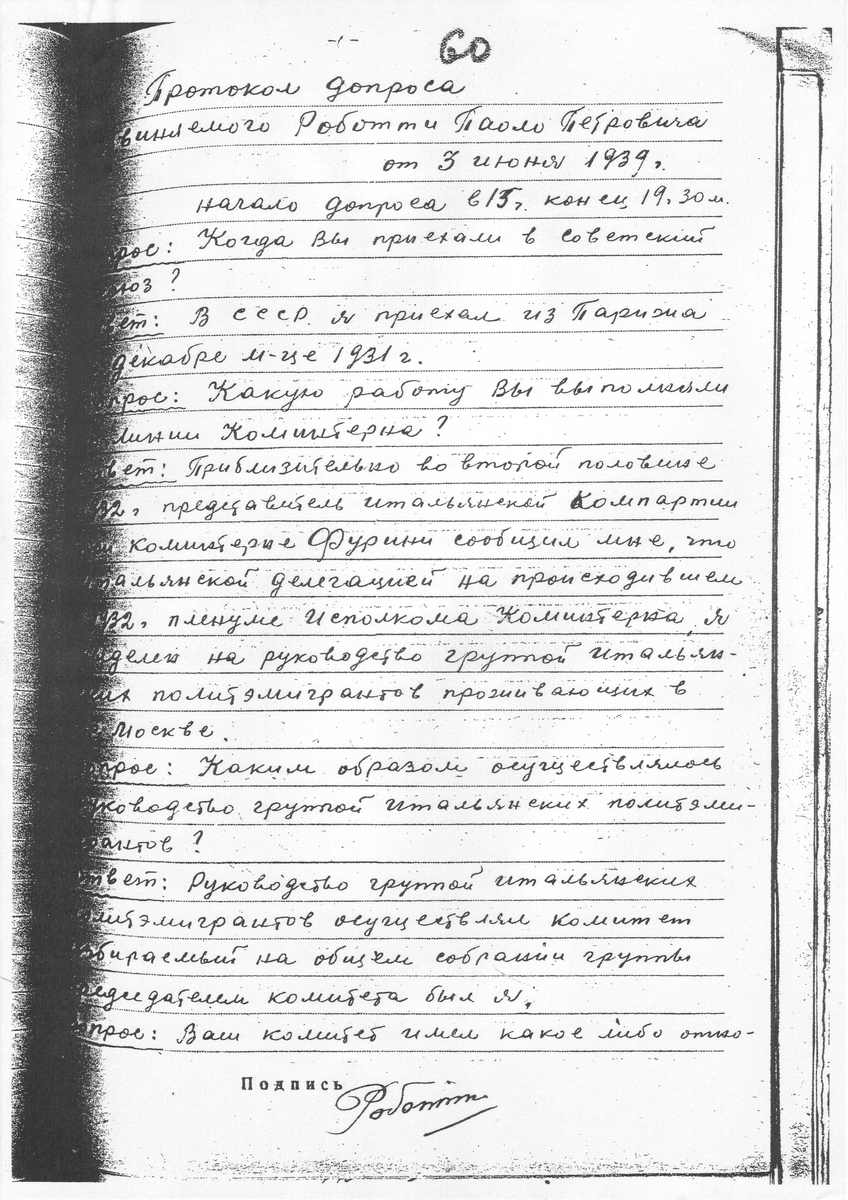 -1-
60
Протокол допроса
виняемого Роботти Паоло Петровича
от 3 июня 1939г.
начало допроса в 15г. конец 19.30м.
прос: Когда Вы приехали в Советский
юз?
вет: В СССР я приехал из Парижа
декабре м-це 1931г.
прос: Какую работу Вы выполняли
линии Коминтерна?
вет: Приблизительно во второй половине
32г представитель итальянской Компартии
ри коминтерне Фурини сообщил мне, что
тальянской делегацией на происходившем
932г пленуме Исполкома Коминтерна, я
делен на руководство группой итальян-
ких политэмигрантов проживающих в
Москве.
прос: Каким образом осуществлялось
уководство группой итальянских политэми-
рантов?
твет: Руководство группой итальянских
литэмигрантов осуществлял комитет
збираемый на общем собрании группы
редседателем комитета был я,
опрос: Ваш комитет имел какое либо отно-
Подпись
Роботти